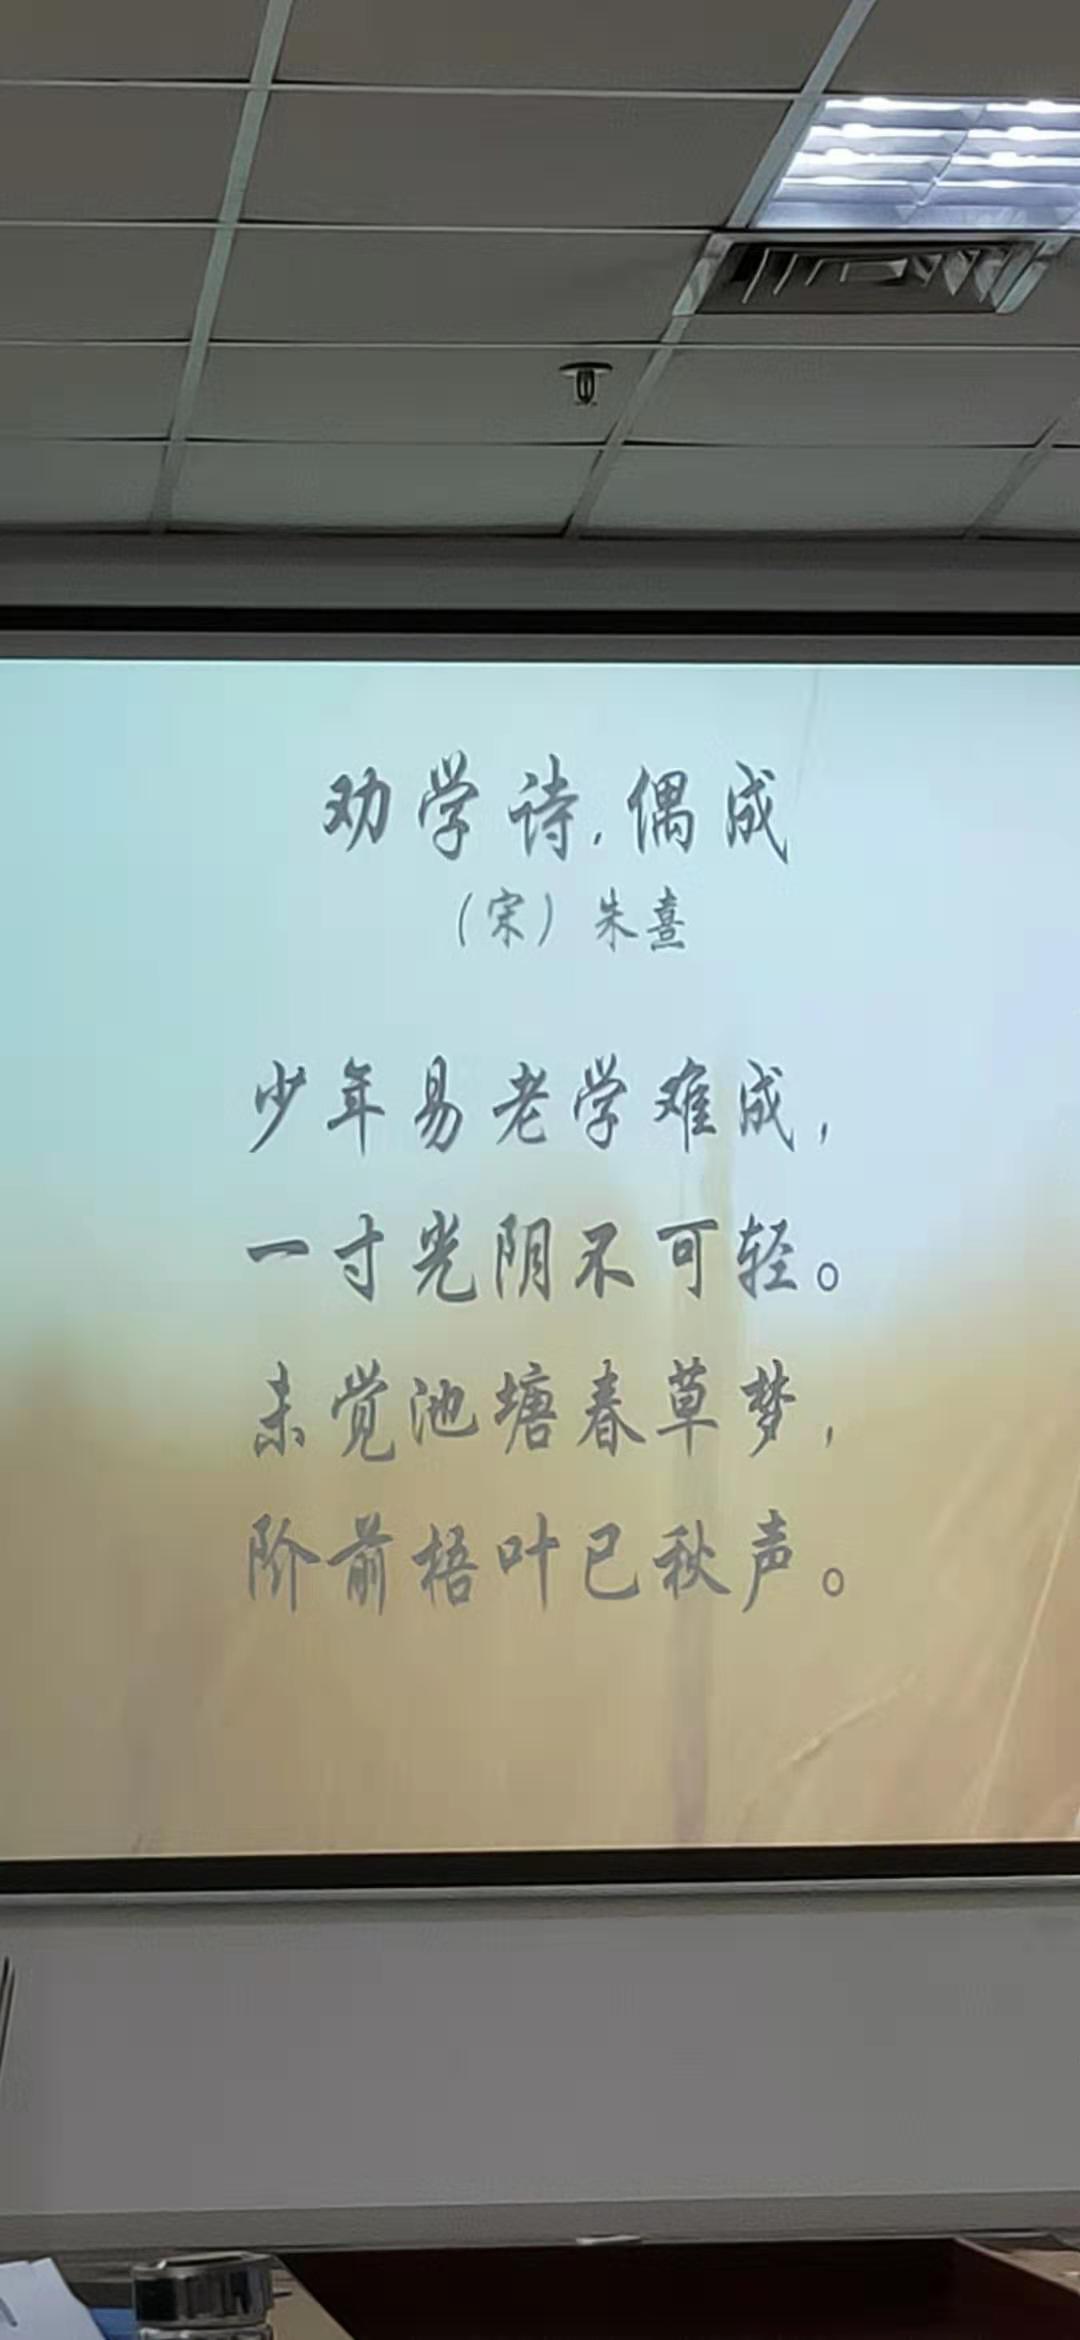 劝学诗,偶成
（宋）朱熹
少年易老学难成，
一寸光阴不可轻。
未觉池塘春草梦，
阶前梧叶已秋声。